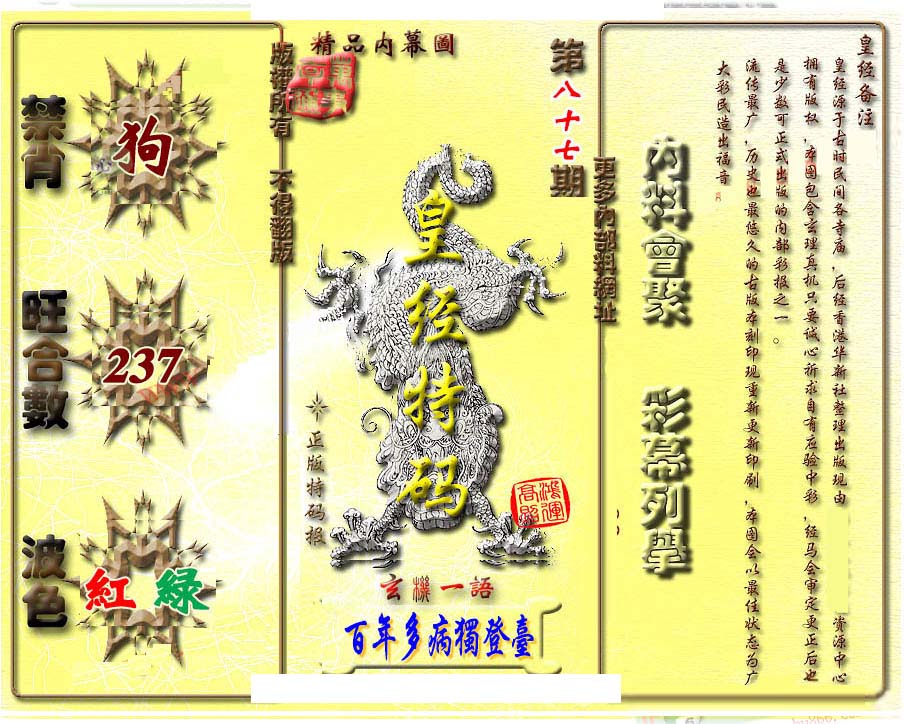 皇经备注
皇经源于古时民间各寺庙，后经香港华新社整理出版现由 资源中心
拥有版权，本图包含玄理真机只要诚心祈求自有应验中彩，经马会审定更正后也
是少数可正式出版的内部彩报之一。
流传最广，历史也最悠久的古版本刻印现重新更新印刷，本图会以最佳状态为广
大彩民造出福音
内料會聚 彩幕列學
更多內部料網址
第八十七期
精品内幕圖
皇经特码
正版特码报
鴻運
高照
玄機一語
百年多病獨登臺
版權所有 不得翻版
禁肖
狗
旺合數
237
波色
紅 綠